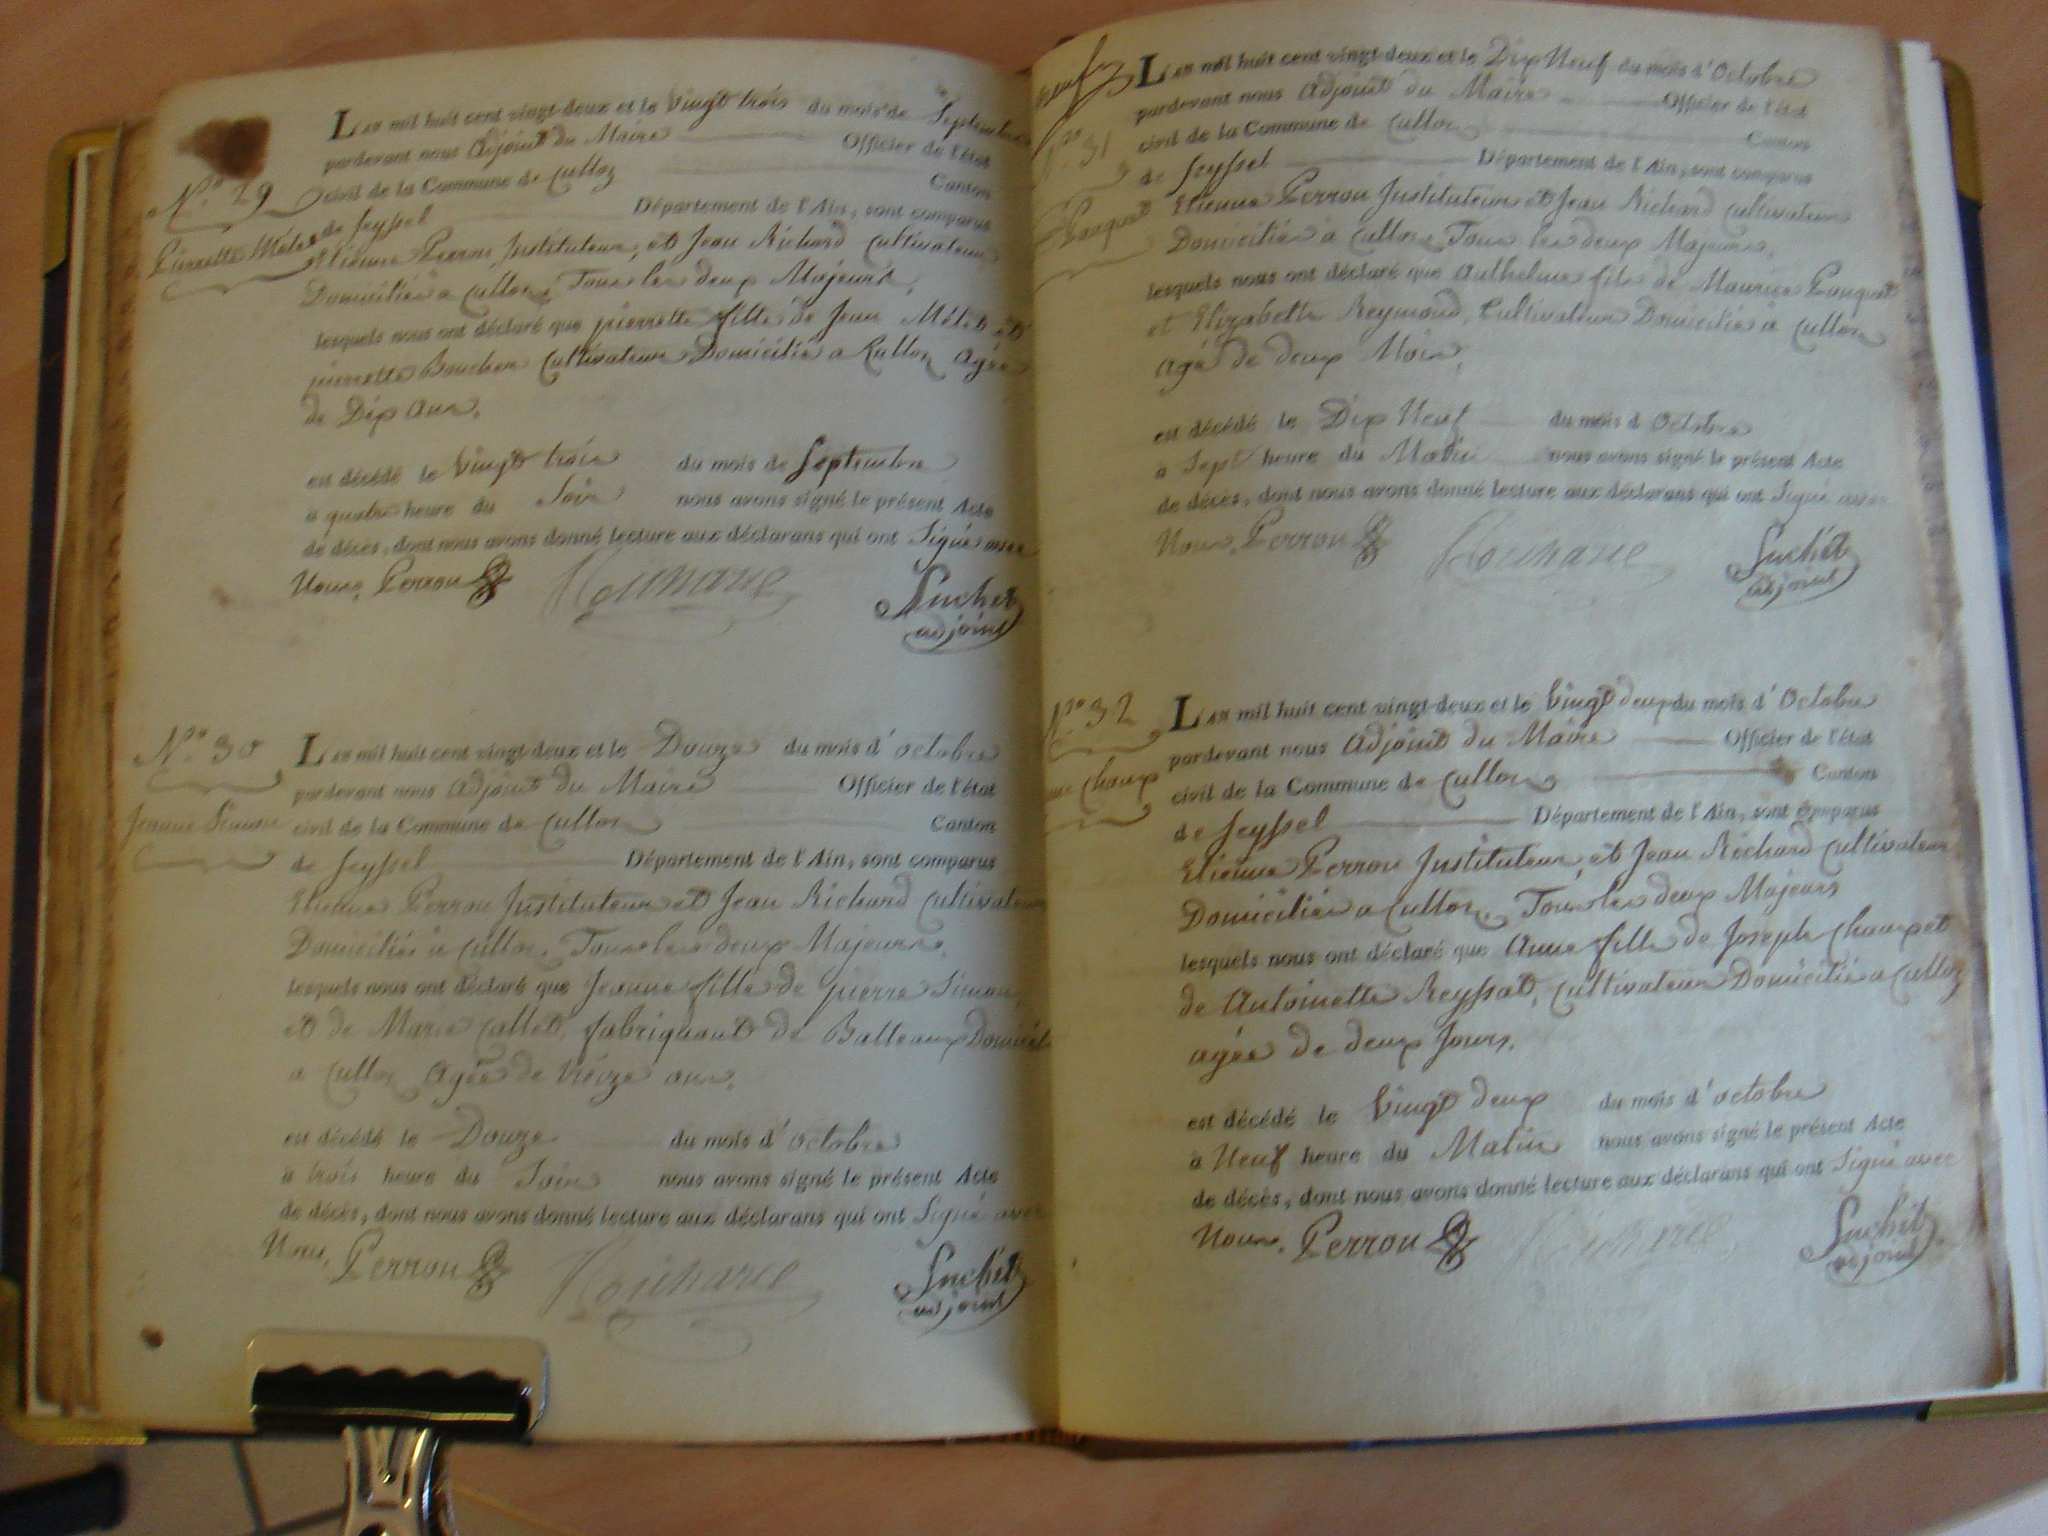 L'an mil huit cent vingt-deux et le Vingt trois du mois de Septembre
pardevant nous Adjoint du Maire Officier de l'état
civil de la Commune de Culloz Canton
de Seyssel Département de l'Ain, sont comparus
N.ro 29
Pierrette
Etienne Perrou Instituteur, et Jean Richard Cultivateur
Domiciliés a Culloz, Tous les deux Majeurs,
lesquels nous ont déclaré que pierrette fille de Jean et
pierrette Cultivateur Domicilié a Kulloz Agée
de Dix ans,
est décédé le Vingt trois du mois de Septembre
a quatre heure du Soir nous avons signé le présent Acte
de décès, dont nous avons donné lecture aux déclarans qui ont Signé avec
Nous, Perrou Suchet
adjoint
N.ro 30
Jeanne Simon
L'an mil huit cent vingt-deux et le Douze du mois d'octobre
pardevant nous Adjoint du Maire Officier de l'état
civil de la Commune de Culloz Canton
de Seyssel Département de l'Ain, sont comparus
Etienne Perrou Instituteur et Jean Richard Cultivateur
Domiciliés a Culloz, Tous les deux Majeurs,
lesquels nous ont déclaré que Jeanne fille de pierre Simon,
et de Marie Callet, fabriquant de Batteaux
a Culloz Agée de treize ans,
est décédé le Douze du mois d'octobre
a trois heure du Soir nous avons signé le présent Acte
de décès, dont nous avons donné lecture aux déclarans qui ont Signé avec
Nous, Perrou Suchet
adjoint
L'an mil huit cent vingt-deux et le Dix Neuf du mois d'Octobre
pardevant nous Adjoint du Maire Officier de l'état
civil de la Commune de Culloz Canton
de Seyssel Département de l'Ain, sont comparus
N.ro 31
Etienne Perrou Instituteur et Jean Richard Cultivateur
Domiciliés a Culloz, Tous les deux Majeurs,
lesquels nous ont déclaré que Anthelme fils de Maurice
et Elizabeth Reymond, Cultivateur Domicilié a Culloz
agé de deux Mois,
est décédé le Dix Neuf du mois d'Octobre
a Sept heure du Matin nous avons signé le présent Acte
de décès, dont nous avons donné lecture aux déclarans qui ont Signé avec
Nous, Perrou Suchet
adjoint
N.ro 32
L'an mil huit cent vingt-deux et le Vingt deux du mois d'Octobre
pardevant nous Adjoint du Maire Officier de l'état
civil de la Commune de Culloz Canton
de Seyssel Département de l'Ain, sont comparus
Etienne Perrou Instituteur, et Jean Richard Cultivateur
Domiciliés a Culloz, Tous les deux Majeurs
lesquels nous ont déclaré que Anne fille de Joseph Champ et
de Antoinette Reyssat, Cultivateur Domicilié a Culloz
agée de deux Jours,
est décédé le Vingt deux du mois d'octobre
a Neuf heure du Matin nous avons signé le présent Acte
de décès, dont nous avons donné lecture aux déclarans qui ont Signé avec
Nous, Perrou Suchet
adjoint